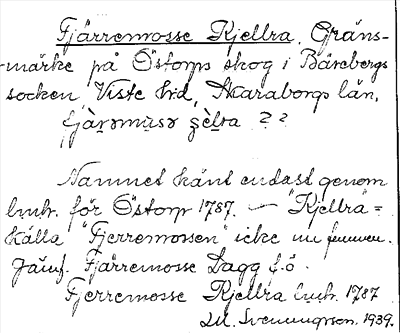 Fjärremosse Kjellra, Gräns-
märke på Östorps skog i Bärebergs
socken, Viste hd, Skaraborgs län,
fjàrəmusə çèlra ??
Namnet känt endast genom
lmhr. för Östorp 1787. — "Kjellra" =
källa "Fjerremossen" icke nu funnen.
Jämf. Fjärremosse Lagg f.ö.
Fjerremosse Kjellra lmhr. 1787
Svenungsson. 1939.